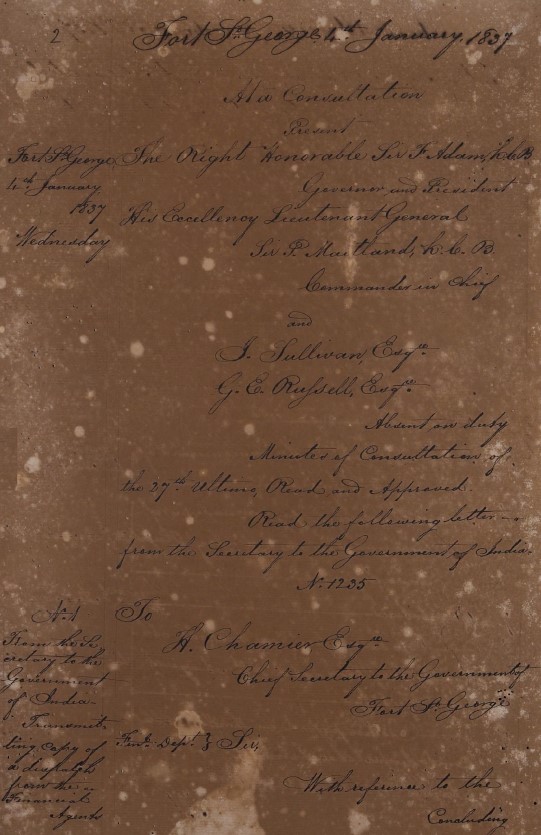 2
Fort St. George 4th January 1837
At a Consultation
Present
Fort St. George
4th January
1837
Wednesday
The Right Honorable Sir F Adam, K.C.B
Governor and President
His Excellency Lieutenant General
Sir P. Maitland, K. C. B.
Commander in Chief
and
J. Sullivan, Esqre.
G. E. Russell, Esqre.
Absent on duty
Minutes of Consultation of
the 27th Ultimo, Read and Approved.
Read the following letter
from the Secretary to the Government of India.
No. 1235
No. 1
From the Se
cretary to the
Government
of India
Transmit-
ting copy of
a despatch
from the
Financial
Agents
To
H. Chamier Esqre
Chief Secretary to the Government of
Fort St. George
Dept. } Sir,
With reference to the
Concluding